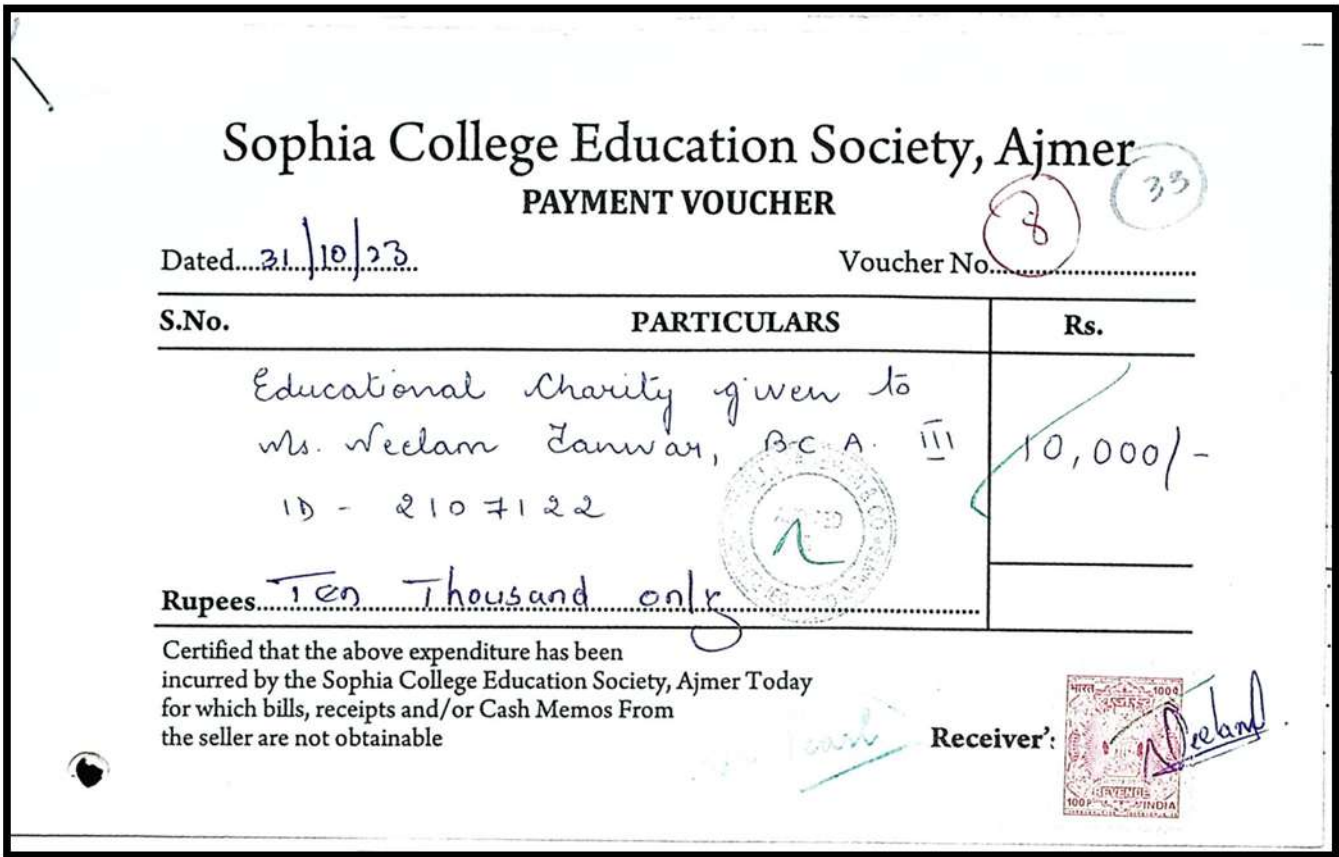 Sophia College Education Society, Ajmer
33
PAYMENT VOUCHER
8
Dated....31/10/23 Voucher No.....
S.No. PARTICULARS Rs.
Educational Charity given to
Ms. Neelam Tanwar, B.C.A. III 10,000/-
ID - 2107122
Rupees....Ten Thousand only
Certified that the above expenditure has been
incurred by the Sophia College Education Society, Ajmer Today
for which bills, receipts and/or Cash Memos From
the seller are not obtainable
Receiver':
Neelam
भारत 100
REVENUE
100 INDIA